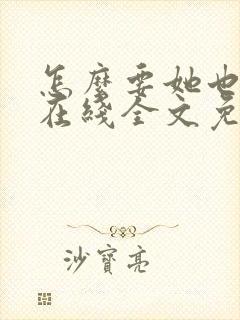 怎麼要她也
在綫全文免
沙寶亮